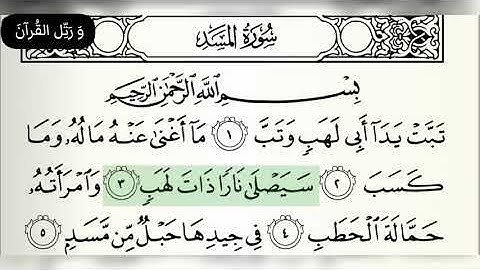 وَ رَتِّل القُرآنَ
سُورَةُ المَسَد
بِسْمِ اللَّهِ الرَّحْمَٰنِ الرَّحِيمِ
تَبَّتْ يَدَآ أَبِي لَهَبٍ وَتَبَّ ١ مَآ أَغْنَىٰ عَنْهُ مَالُهُۥ وَمَا
كَسَبَ ٢ سَيَصْلَىٰ نَارًا ذَاتَ لَهَبٍ ٣ وَٱمْرَأَتُهُۥ
حَمَّالَةَ ٱلْحَطَبِ ٤ فِي جِيدِهَا حَبْلٌ مِّن مَّسَدٍۭ ٥